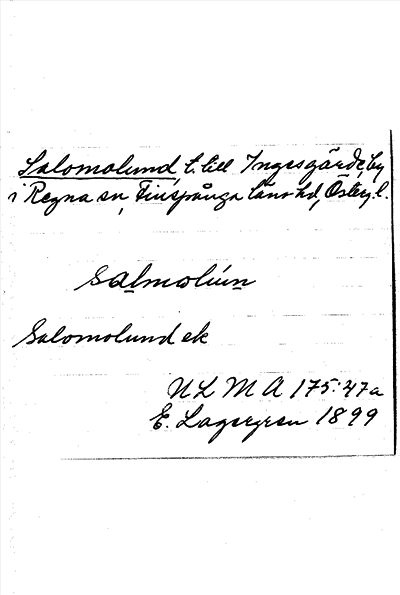 Salomolund, t. till Ingesgärde, by
i Regna sn, Finspånga läns hd, Österg. l.
salmolún
Salomolund ek
ULMA 175:47a
E. Lagergren 1899